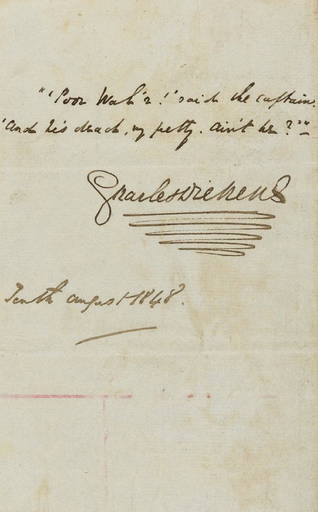 "'Poor Wal'r!' said the captain.
'And he's dead, my pretty. ain't he?'"
Charles Dickens
Tenth August 1848.